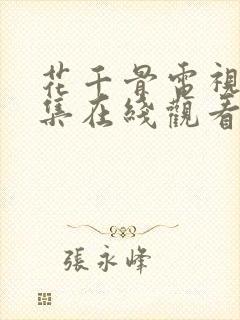 花千骨電視
集在綫觀看
張永峰